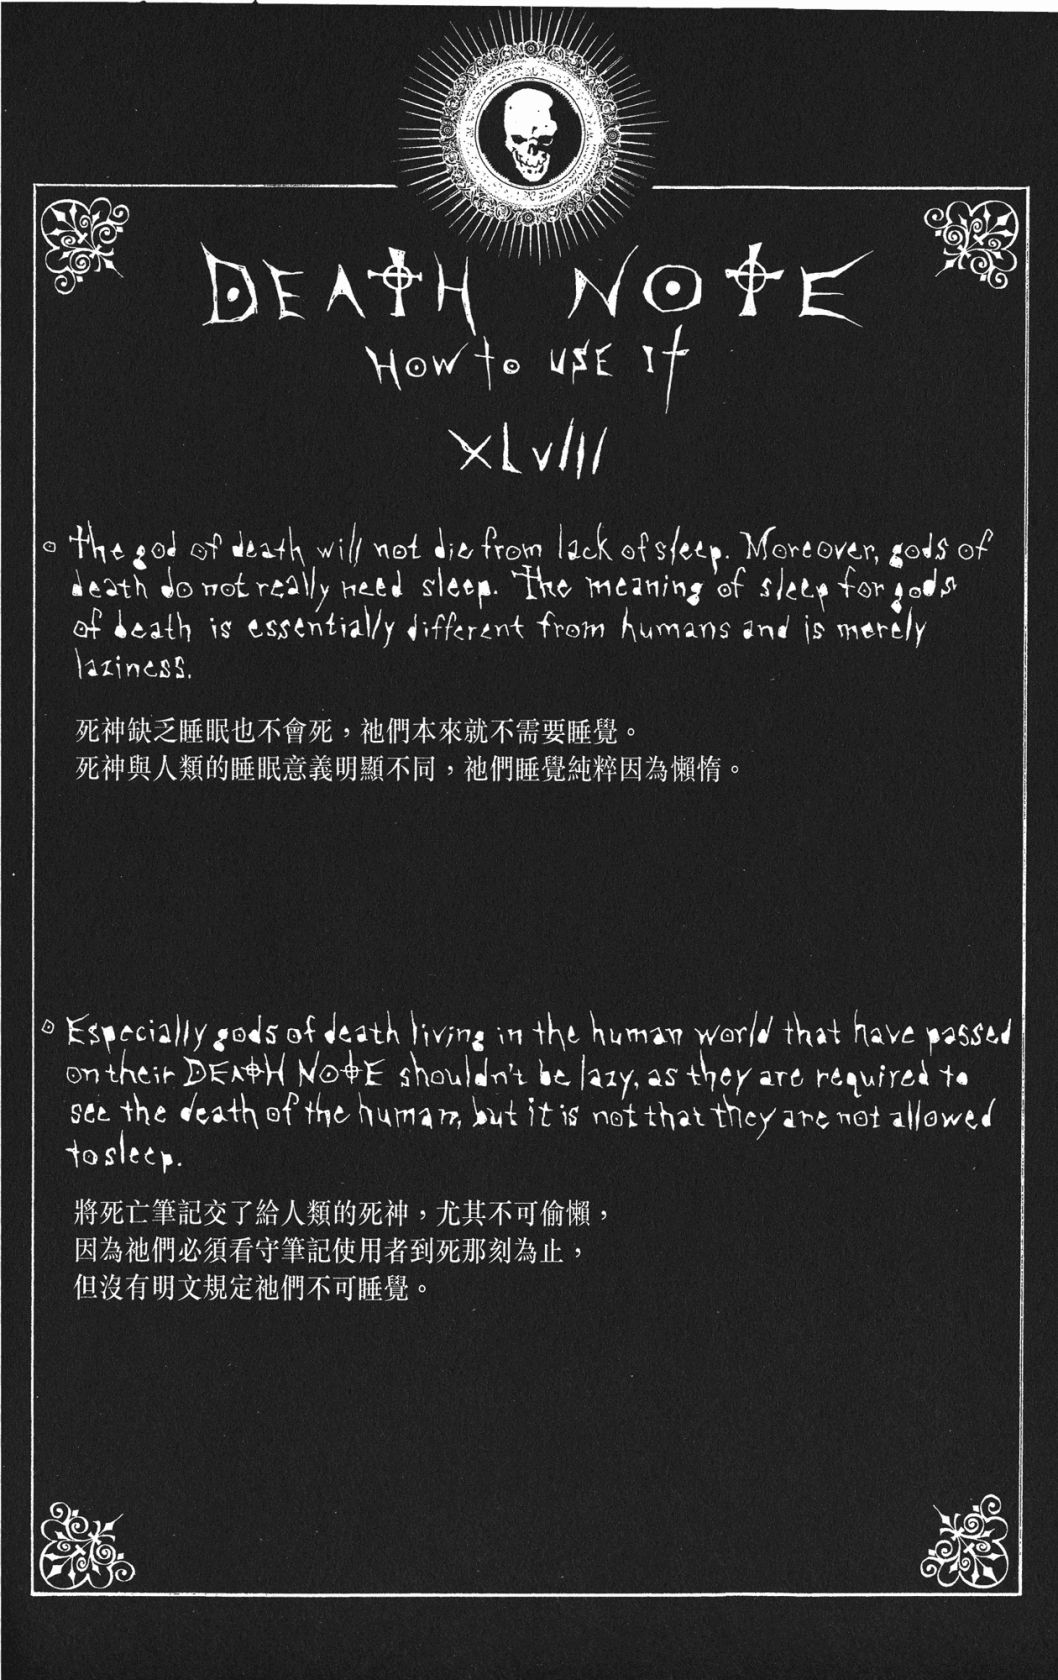 DEATH NOTE
HOW to USE It
XLVIII
The god of death will not die from lack of sleep. Moreover, gods of
death do not really need sleep. The meaning of sleep for gods
of death is essentially different from humans and is merely
laziness.
死神缺乏睡眠也不會死，祂們本來就不需要睡覺。
死神與人類的睡眠意義明顯不同，祂們睡覺純粹因為懶惰。
Especially gods of death living in the human world that have passed
on their DEATH NOTE shouldn't be lazy, as they are required to
see the death of the human, but it is not that they are not allowed
to sleep.
將死亡筆記交了給人類的死神，尤其不可偷懶，
因為祂們必須看守筆記使用者到死那刻為止，
但沒有明文規定祂們不可睡覺。